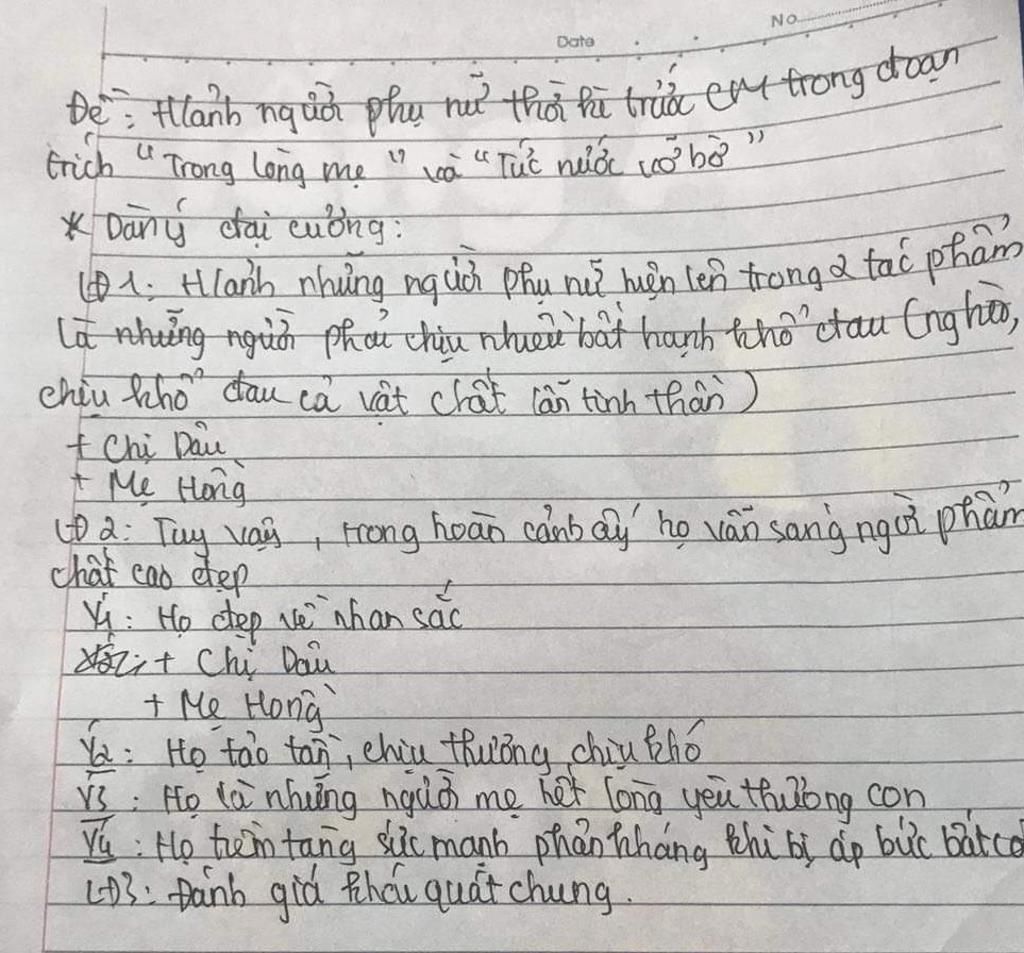 No
Date
Đề: H/ảnh người phụ nữ thời kì trước CM trong đoạn
trích "Trong lòng mẹ" và "Tức nước vỡ bờ"
* Dàn ý đại cương:
LĐ 1: H/ảnh những người phụ nữ hiện lên trong 2 tác phẩm
là những người phải chịu nhiều bất hạnh khổ đau (nghèo,
chịu khổ đau cả vật chất lẫn tinh thần)
+ Chị Dậu
+ Mẹ Hồng
LĐ 2: Tuy vậy, trong hoàn cảnh ấy họ vẫn sáng ngời phẩm
chất cao đẹp
Ý1: Họ đẹp về nhan sắc
+ Chị Dậu
+ Mẹ Hồng
Ý2: Họ tảo tần, chịu thương chịu khó
Ý3: Họ là những người mẹ hết lòng yêu thương con
Ý4: Họ tiềm tàng sức mạnh phản kháng khi bị áp bức bất cô
LĐ3: Đánh giá khái quát chung.